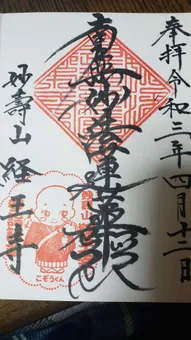 奉拝 令和三年四月十二日
南無妙法蓮華経
妙壽山 経王寺
こぞうくん